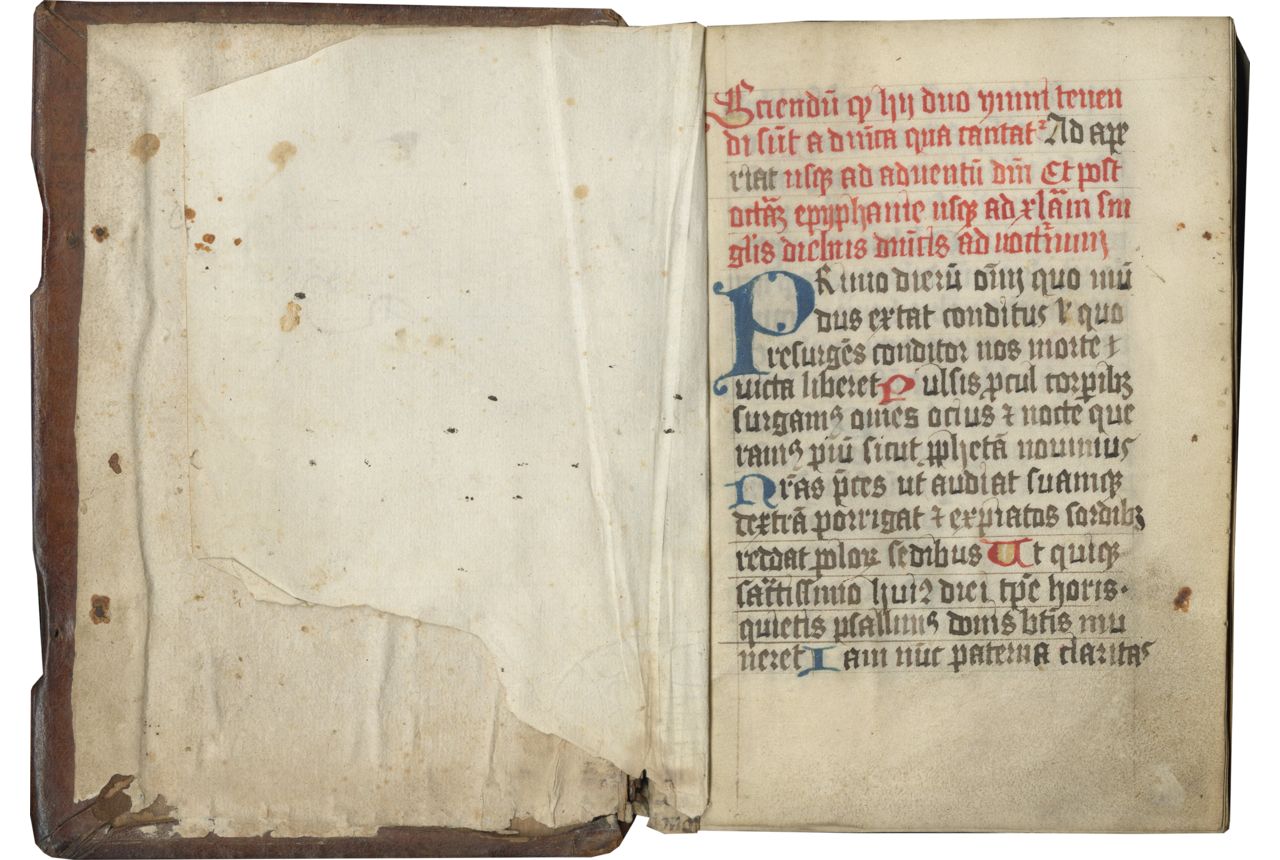 Sciendū ꝙ hij duo ymni tenen
di sūt a dn̄ica qua cantatᷣ Ad ape
riat usqꝫ ad aduentū dn̄i Et post
octāꝫ epyphanie usqꝫ ad xlām sin
glis diebus dn̄icis ad nocturnuꝫ
PRimo dierū om̄i quo mū
dus extat conditus ł quo
resurgēs conditor nos morte
uicta liberet Pulsis ꝓcul torporibꝫ
surgamꝰ om̄es ocius ⁊ nocte que
ramꝰ piū sicut ꝓphetā nouimus
Nr̄as p̄ces ut audiat suamqꝫ
dextrā porrigat ⁊ expiatos sordibꝫ
reddat poloꝝ sedibus Ut quiqꝫ
sac̄tissimo huiꝰ diei tꝑe horis
quietis psallimꝰ donis btīs mu
neret Iam nūc paterna claritas